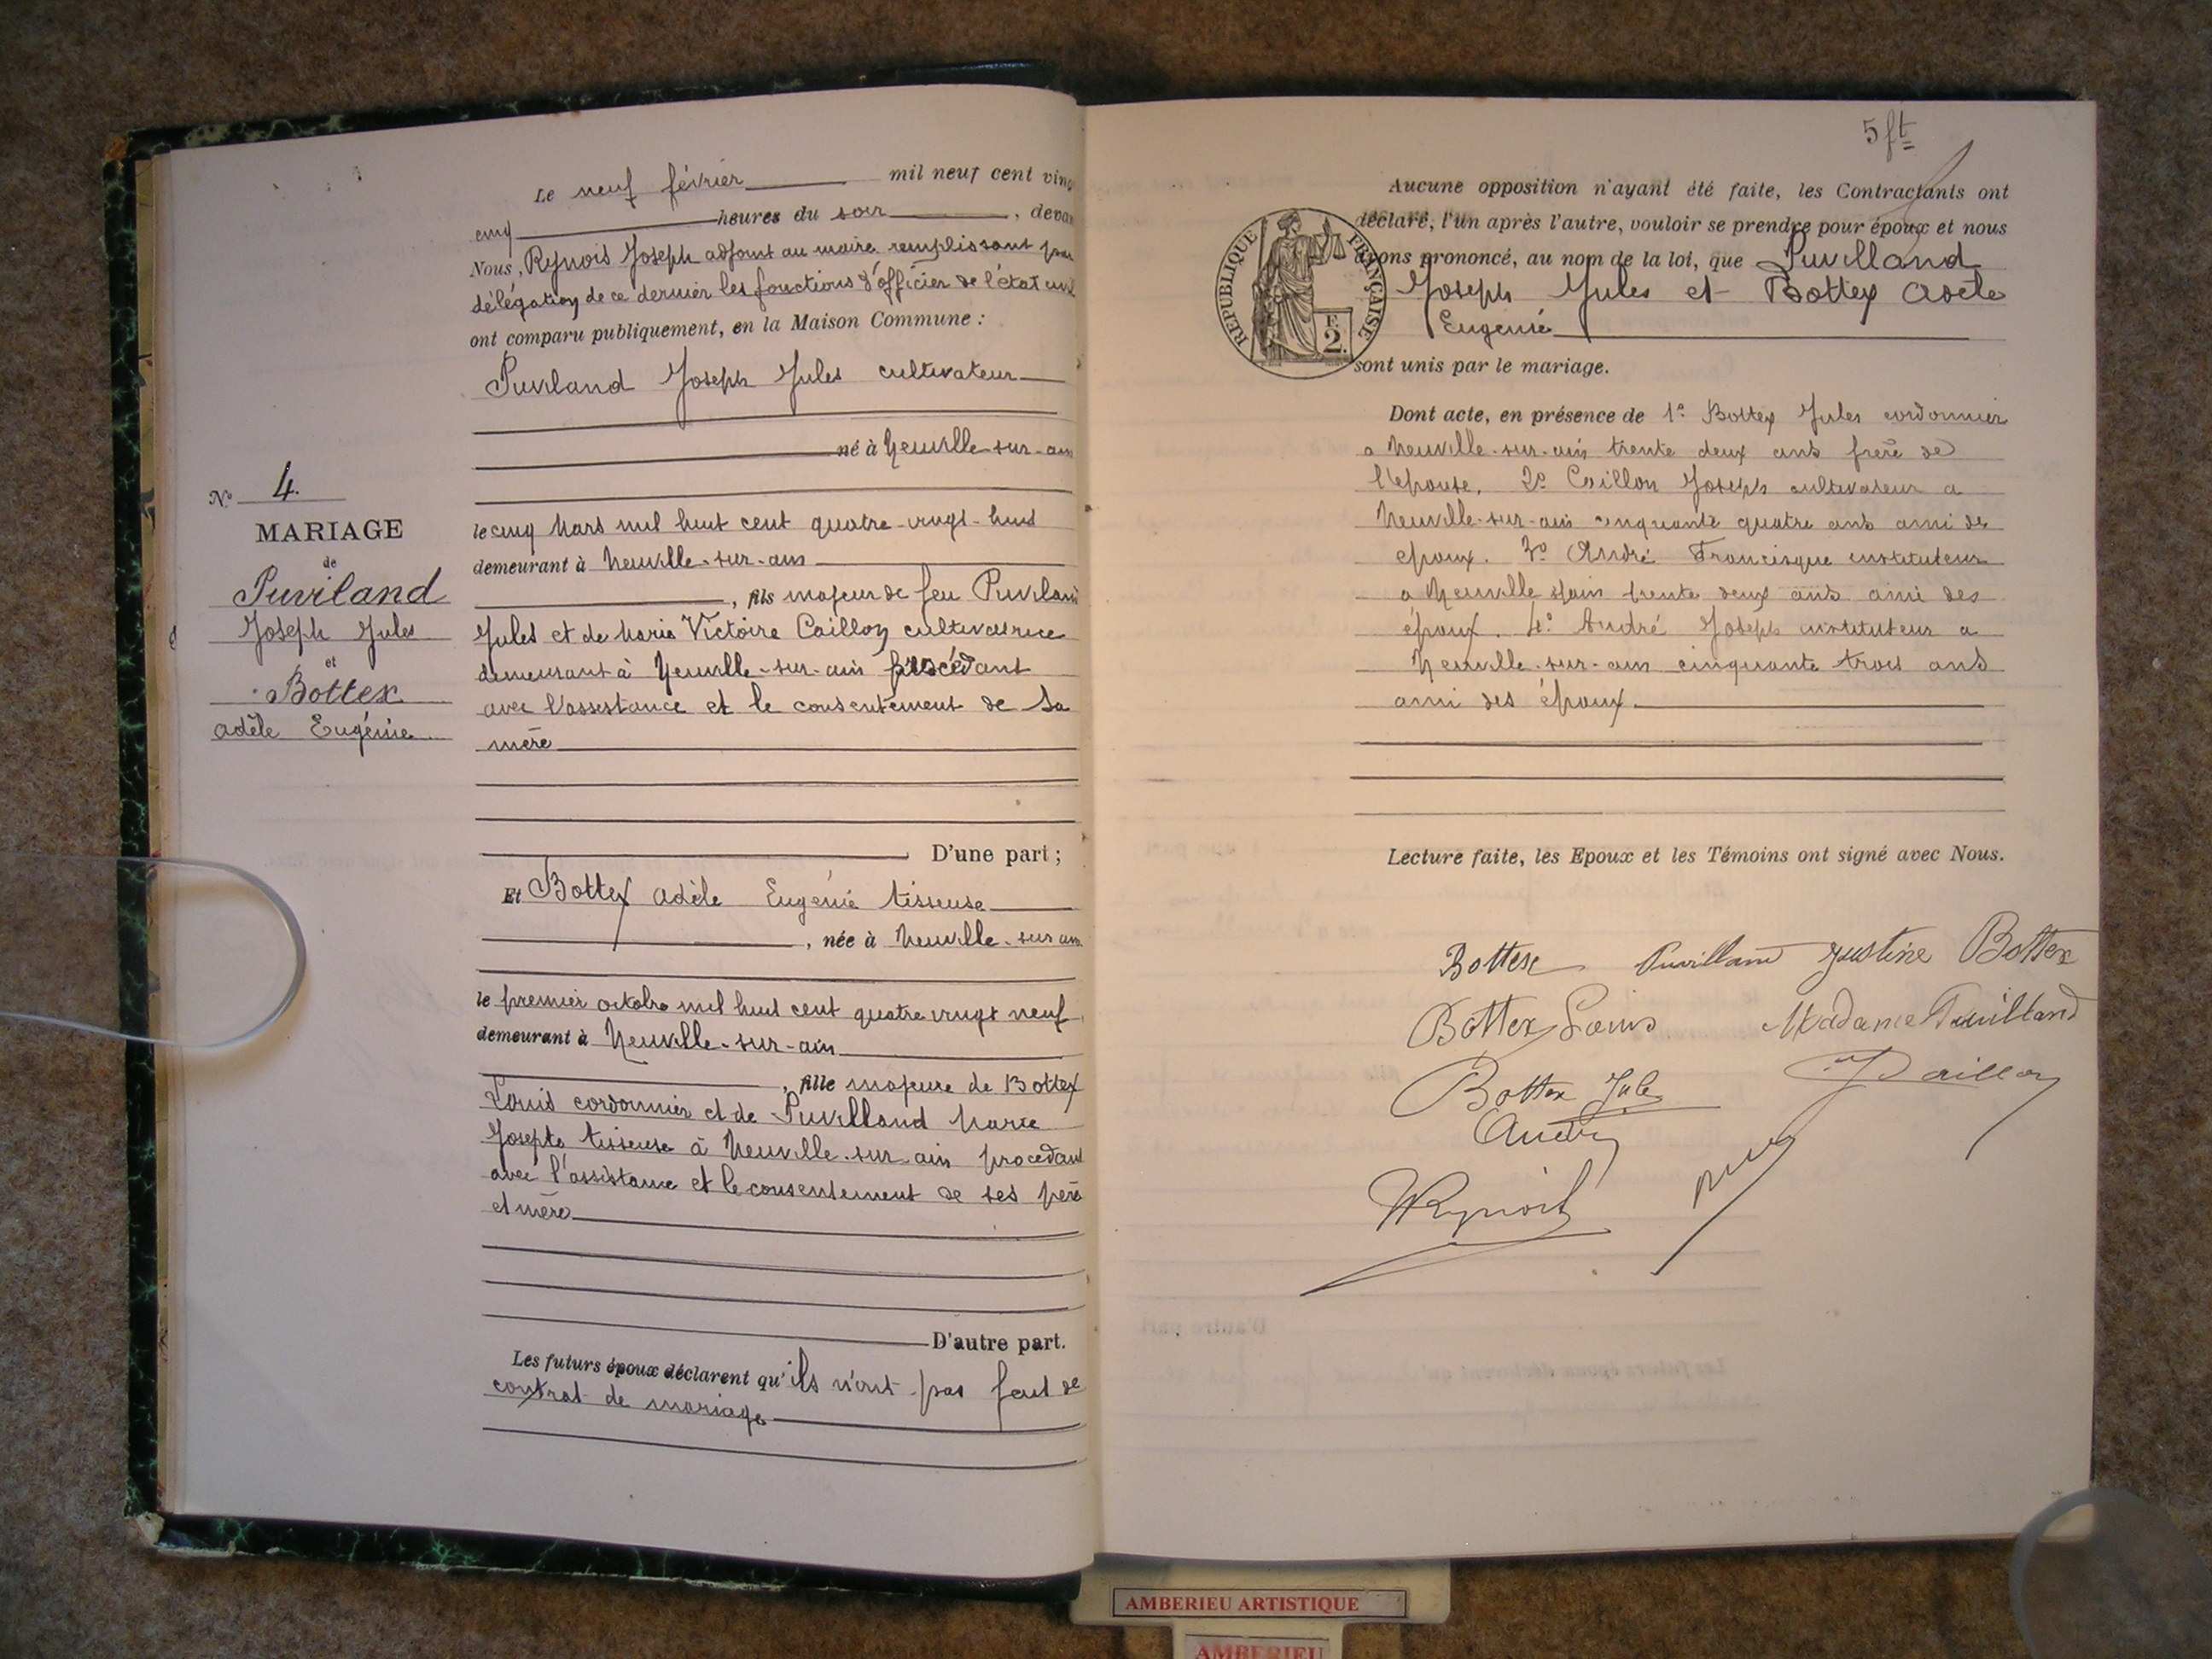 Le neuf février mil neuf cent ving
cinq heures du soir, devan
Nous, Rynois Joseph adjoint au maire remplissant par
délégation de ce dernier les fonctions d'officier de l'état civil
ont comparu publiquement, en la Maison Commune :
Puviland Joseph Jules cultivateur
né à Neuville-sur-ain
le cinq Mars mil huit cent quatre-vingt-huit
demeurant à Neuville-sur-ain
, fils majeur de feu Puviland
Jules et de Marie Victoire Caillon cultivatrice
demeurant à Neuville-sur-ain procédant
avec l'assistance et le consentement de sa
mère
D'une part ;
Et Bottex adèle Eugénie tisseuse
, née à Neuville-sur ain
le premier octobre mil huit cent quatre vingt neuf
demeurant à Neuville-sur-ain
, fille majeure de Bottex
Louis cordonnier et de Puvilland Marie
Josephte tisseuse à Neuville-sur-ain procédant
avec l'assistance et le consentement de ses père
et mère
D'autre part.
Les futurs époux déclarent qu'ils n'ont pas fait de
contrat de mariage
No 4.
MARIAGE
de
Puviland
Joseph Jules
et
Bottex
adèle Eugénie
5 ft
Aucune opposition n'ayant été faite, les Contractants ont
déclaré, l'un après l'autre, vouloir se prendre pour époux et nous
avons prononcé, au nom de la loi, que Puvilland
Joseph Jules et Bottex Adèle
Eugenié
sont unis par le mariage.
REPUBLIQUE FRANÇAISE
F.
2.
Dont acte, en présence de 1º Bottex Jules cordonnier
a Neuville-sur-ain trente deux ans frère de
l'épouse, 2º Caillon Joseph cultivateur a
Neuville-sur-ain cinquante quatre ans ami de
epoux. 3º André Francisque instituteur
a Neuville s/ain trente deux ans ami des
époux. 4º André Joseph instituteur a
Neuville-sur-ain cinquante trois ans
ami des époux
Lecture faite, les Epoux et les Témoins ont signé avec Nous.
Bottex Puvilland Justine Bottex
Bottex Louis Madame Puvilland
Bottex Jules Caillon
André
Rynois
AMBERIEU ARTISTIQUE
AMBERIEU